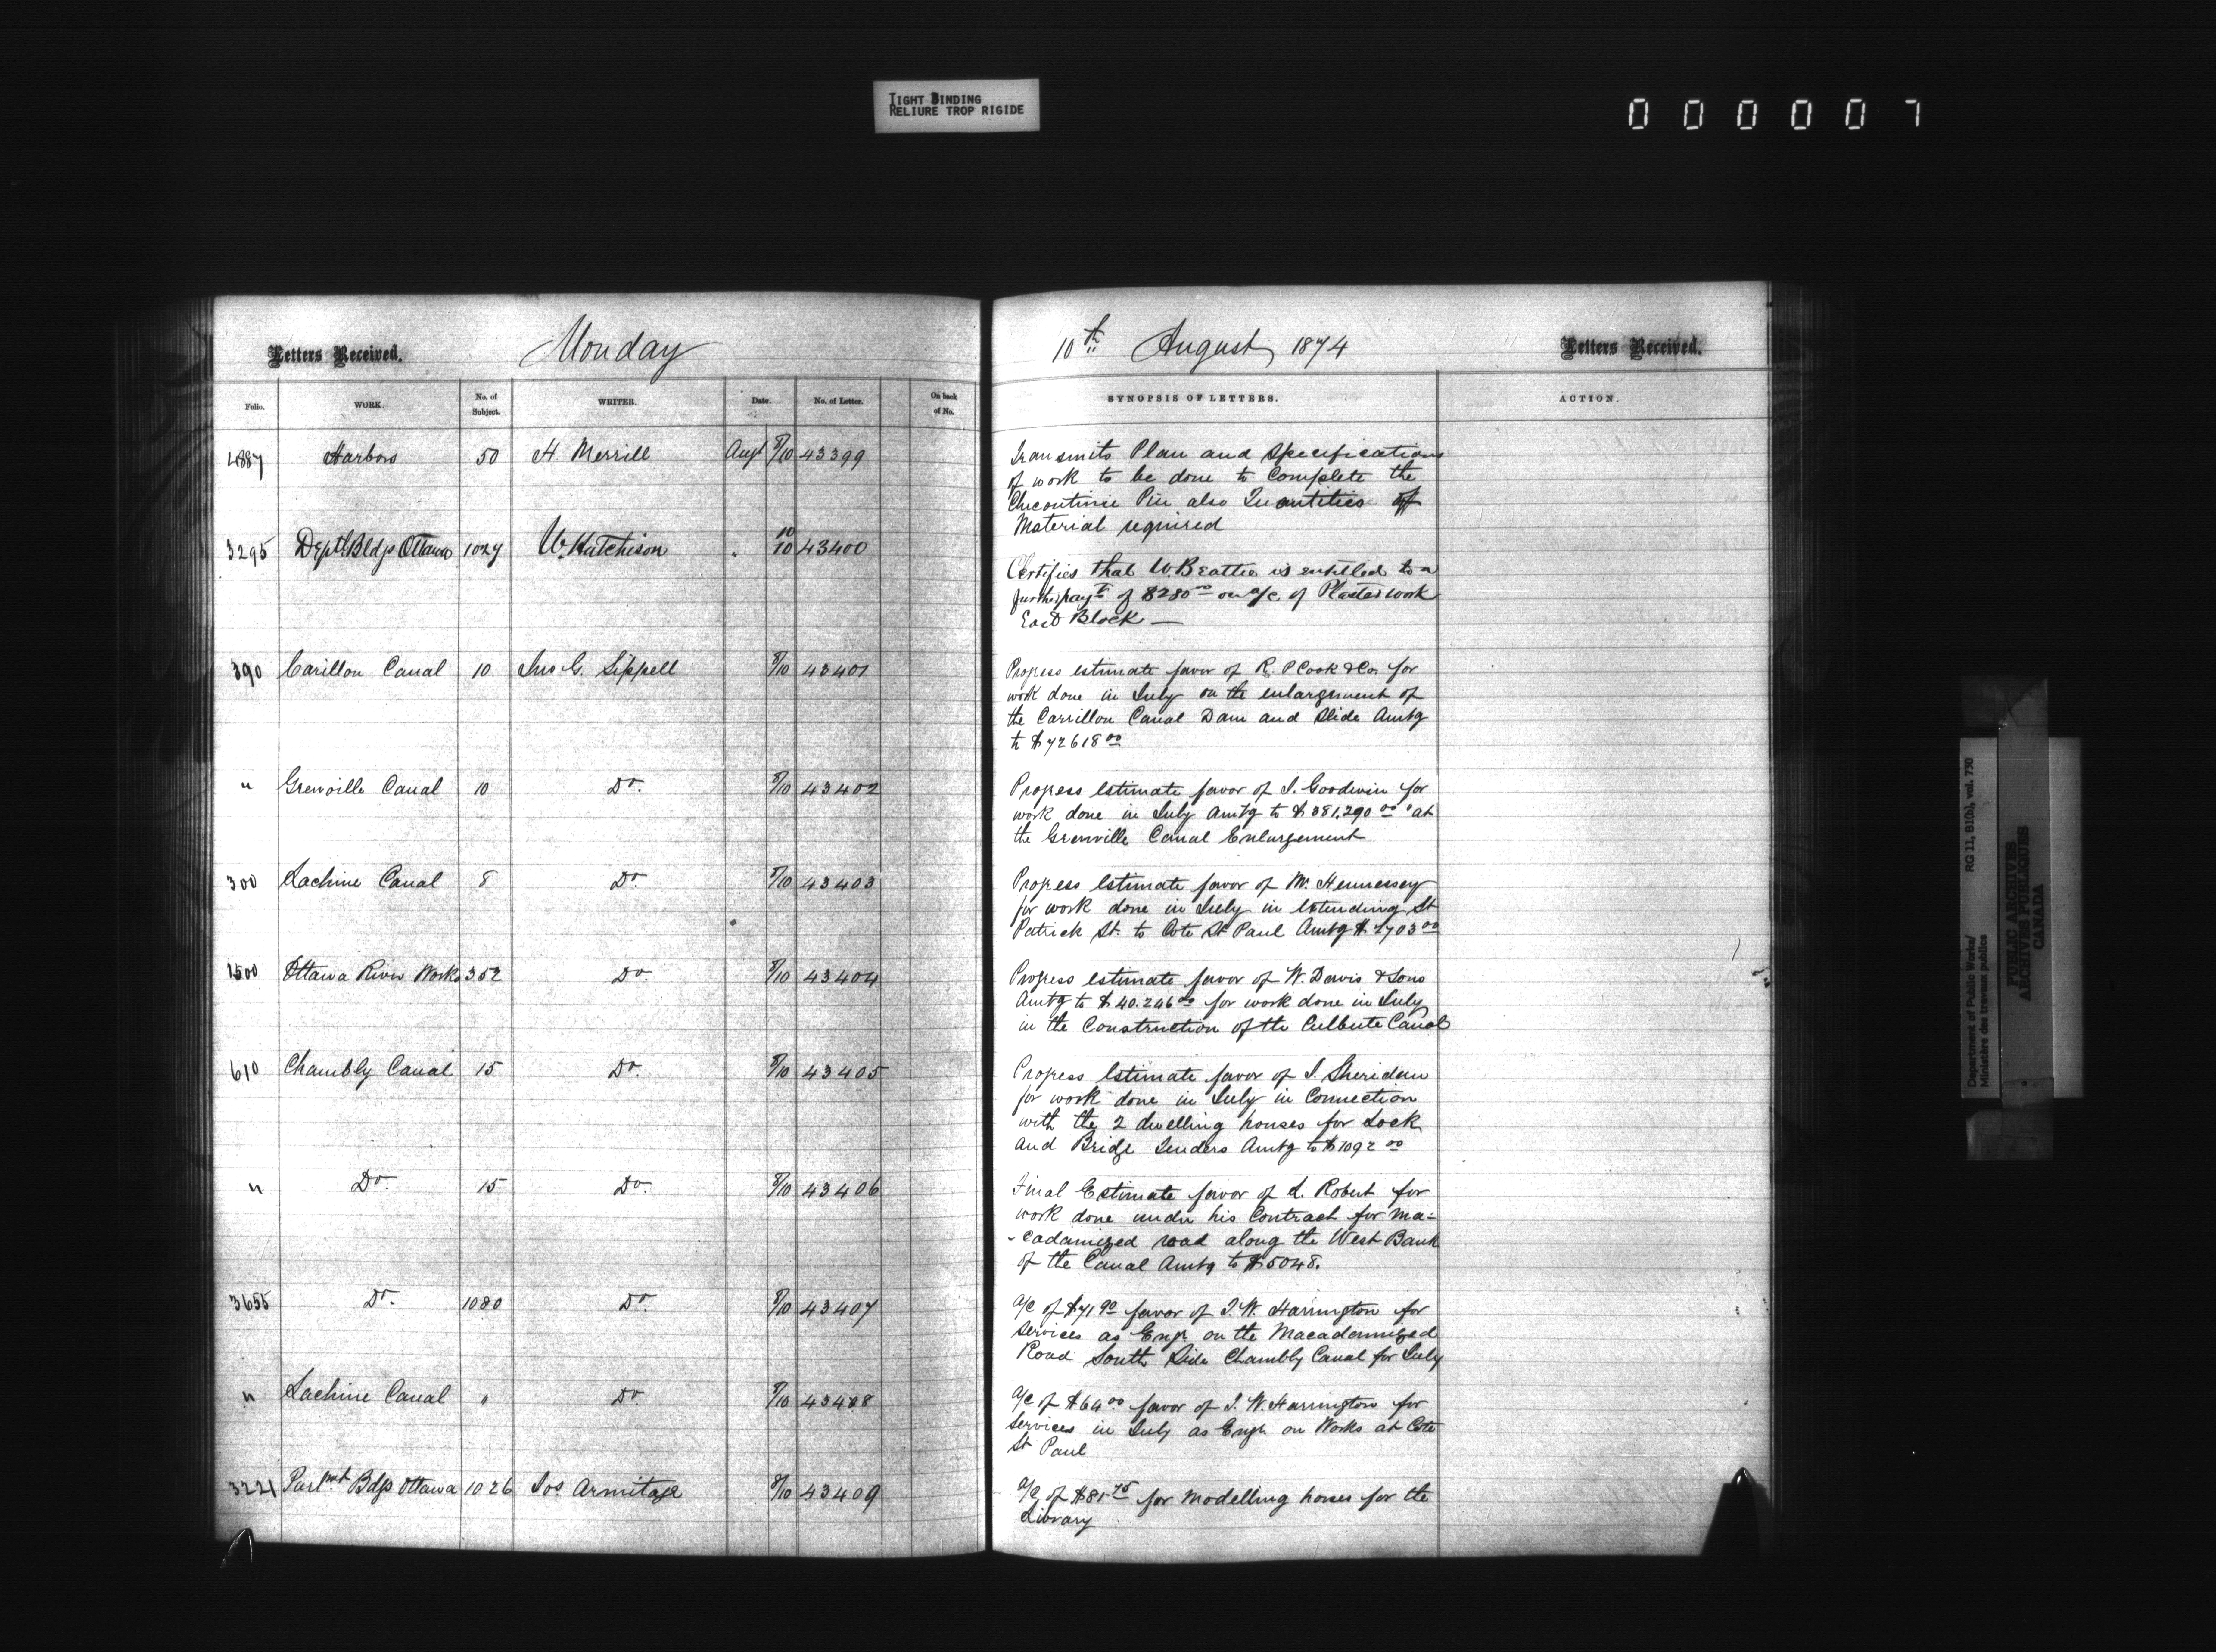 TIGHT BINDING
RELIURE TROP RIGIDE
000007
Letters Received. Monday
Folio. WORK. No. of Subject. WRITER. Date. No. of Letter. On back of No.
4887 Harbors 50 H Merrill Augt 8/10 43399
3295 Deptl Bldgs Ottawa 1027 W. Hutchison " 10/10 43400
390 Carillon Canal 10 Jno G. Sippell 8/10 43401
" Grenville Canal 10 Do. 8/10 43402
300 Lachine Canal 8 Do. 8/10 43403
1500 Ottawa River Works 352 Do 8/10 43404
610 Chambly Canal 15 Do. 8/10 43405
" Do. 15 Do. 8/10 43406
3655 Do. 1080 Do. 8/10 43407
" Lachine Canal " Do 8/10 43408
3221 Parlmt Bdgs Ottawa 1026 Jos Armitage 8/10 43409
10th August 1874 Letters Received.
SYNOPSIS OF LETTERS. ACTION.
Transmits Plan and Specifications
of work to be done to Complete the
Chicoutimi Pier also Quantities of
Material required
Certifies that W. Beattie is entitled to a
further payt of $280 00 on a/c of Plaster work
East Block —
Progress estimate favor of R. P Cook & Co. for
work done in July on the enlargement of
the Carrillon Canal Dam and Slide Amtg
to $72618 00
Progress Estimate favor of J. Goodwin for
work done in July Amtg to $381,290 00 "at
the Grenville Canal Enlargement
Progress Estimate favor of M. Hennessey
for work done in July in Extending St
Patrick St. to Cote St Paul Amtg $ 2703 00
Progress estimate favor of W. Davis & Sons
Amtg to $40.246 00 for work done in July
in the Construction of the Culbute Canal
Progress Estimate favor of J. Sheridan
for work done in July in Connection
with the 2 dwelling houses for Lock
and Bridge Tenders Amtg to $1092 00
Final Estimate favor of L. Robert for
work done under his Contract for Ma-
-cadamized road along the West Bank
of the Canal Amtg to $5048.
a/c of $71 90 favor of T. W. Harrington for
Services as Engr. on the Macadamized
Road South Side Chambly Canal for July
a/c of $64 00 favor of T. W. Harrington for
Services in July as Engr. on Works at Cote
St Paul
a/c of $81 75 for Modelling houses for the
Library
Department of Public Works/ RG 11, B1(b), vol. 730
Ministère des travaux publics
PUBLIC ARCHIVES
ARCHIVES PUBLIQUES
CANADA